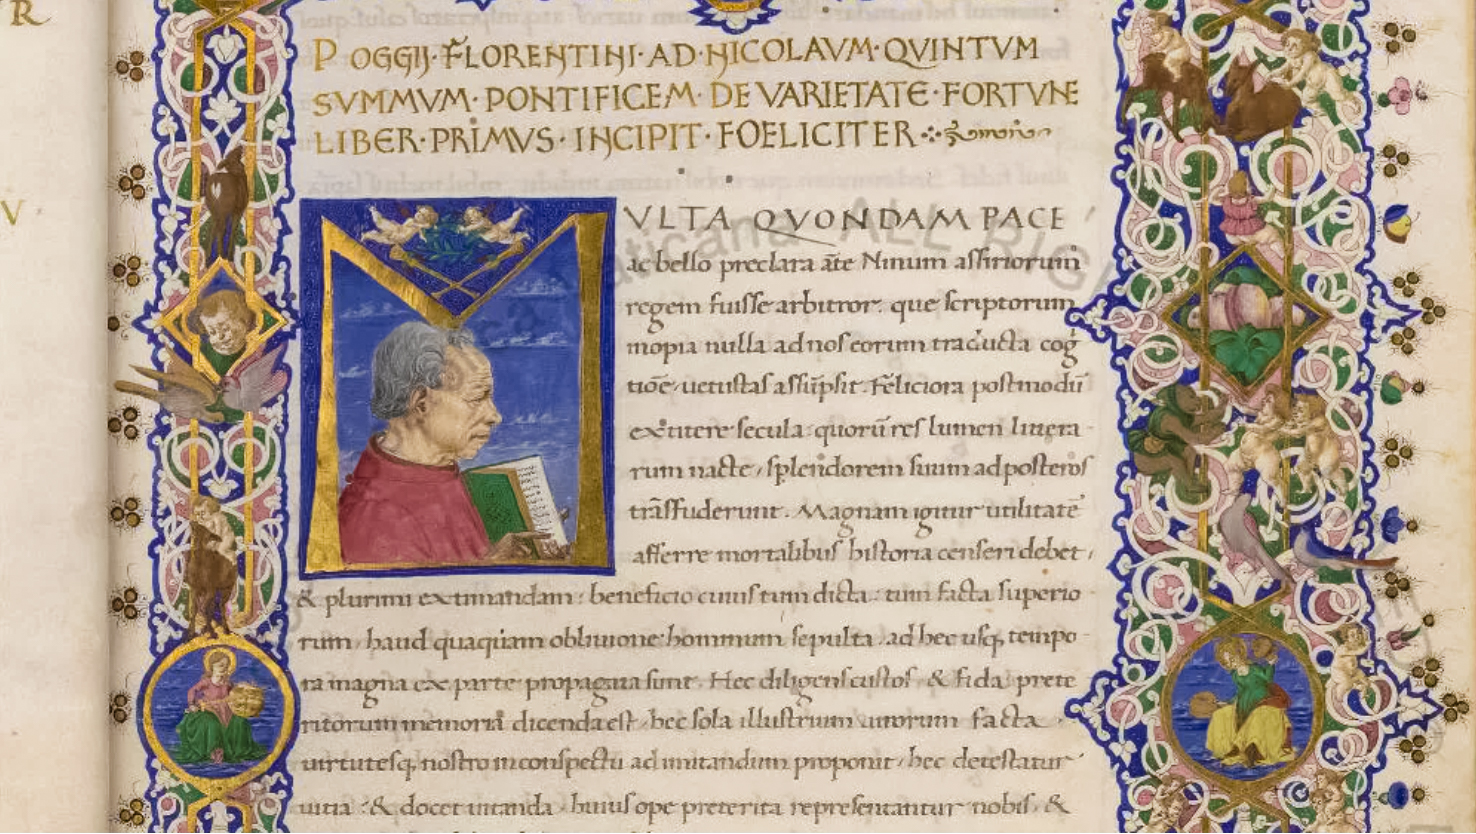 R
V
POGGIJ·FLORENTINI·AD·NICOLAVM·QVINTVM
SVMMVM·PONTIFICEM·DE VARIETATE·FORTVNE
LIBER·PRIMVS·INCIPIT·FOELICITER
VLTA QVONDAM PACE
ac bello preclara āte Ninum assiriorum
regem fuisse arbitror: que scriptorum
inopia nulla ad nos eorum traducta cog
tiōe, uetustas assūpsit. Feliciora postmodū
extitere secula: quorū res lumen littera
rum nacte, splendorem suum ad posteros
trāsfuderunt. Magnam igitur utilitatē
afferre mortalibus historia censeri debet,
& plurimi extimandam: beneficio cuius tum dicta: tum facta superio
rum, haud quaquam obliuione hominum sepulta, ad hec usq, tempo
ra magna ex parte propagata sunt. Hec diligens custos, & fida prete
ritorum memoria dicenda est, hec sola illustrium uirorum facta
uirtutesq, nostro in conspectu ad imitandum proponit, hec detestatur
uitia: & docet uitanda. huius ope preterita representantur nobis, &
aticana ALL RIG